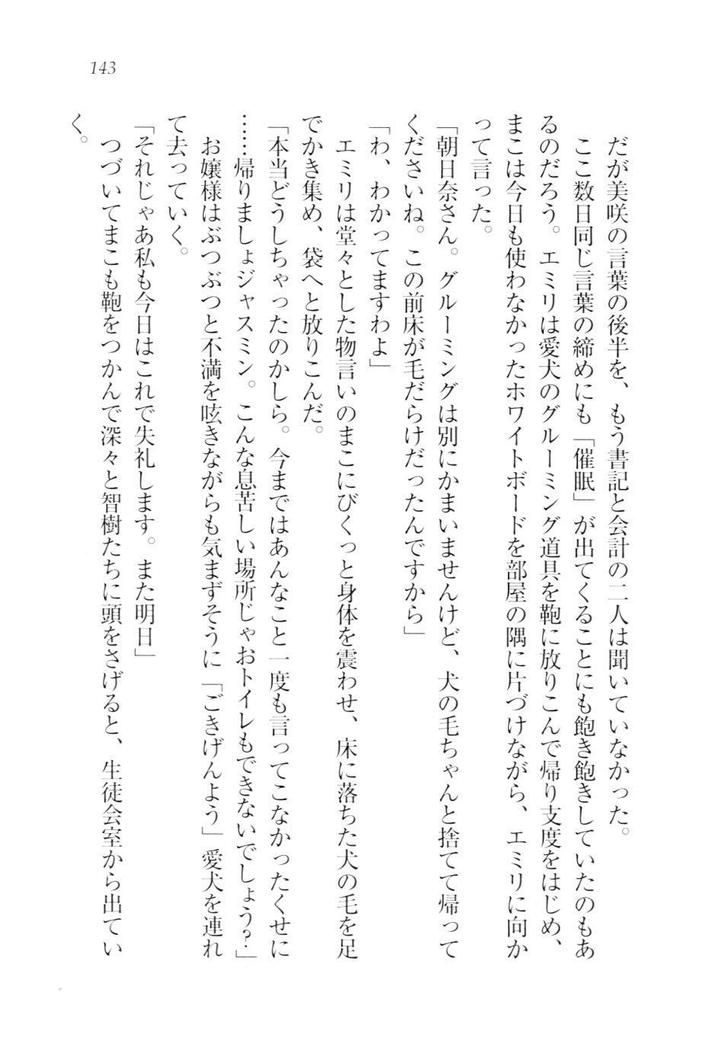 143
だが美咲の言葉の後半を、もう書記と会計の二人は聞いていなかった。
ここ数日同じ言葉の締めにも「催眠」が出てくることにも飽き飽きしていたのもあ
るのだろう。エミリは愛犬のグルーミング道具を鞄に放りこんで帰り支度をはじめ、
まこは今日も使わなかったホワイトボードを部屋の隅に片づけながら、エミリに向か
って言った。
「朝日奈さん。グルーミングは別にかまいませんけど、犬の毛ちゃんと捨てて帰って
くださいね。この前床が毛だらけだったんですから」
「わ、わかってますわよ」
エミリは堂々とした物言いのまこにびくっと身体を震わせ、床に落ちた犬の毛を足
でかき集め、袋へと放りこんだ。
「本当どうしちゃったのかしら。今まではあんなこと一度も言ってこなかったくせに
……帰りましょジャスミン。こんな息苦しい場所じゃおトイレもできないでしょう?」
お嬢様はぶつぶつと不満を呟きながらも気まずそうに「ごきげんよう」愛犬を連れ
て去っていく。
「それじゃあ私も今日はこれで失礼します。また明日」
つづいてまこも鞄をつかんで深々と智樹たちに頭をさげると、生徒会室から出てい
く。